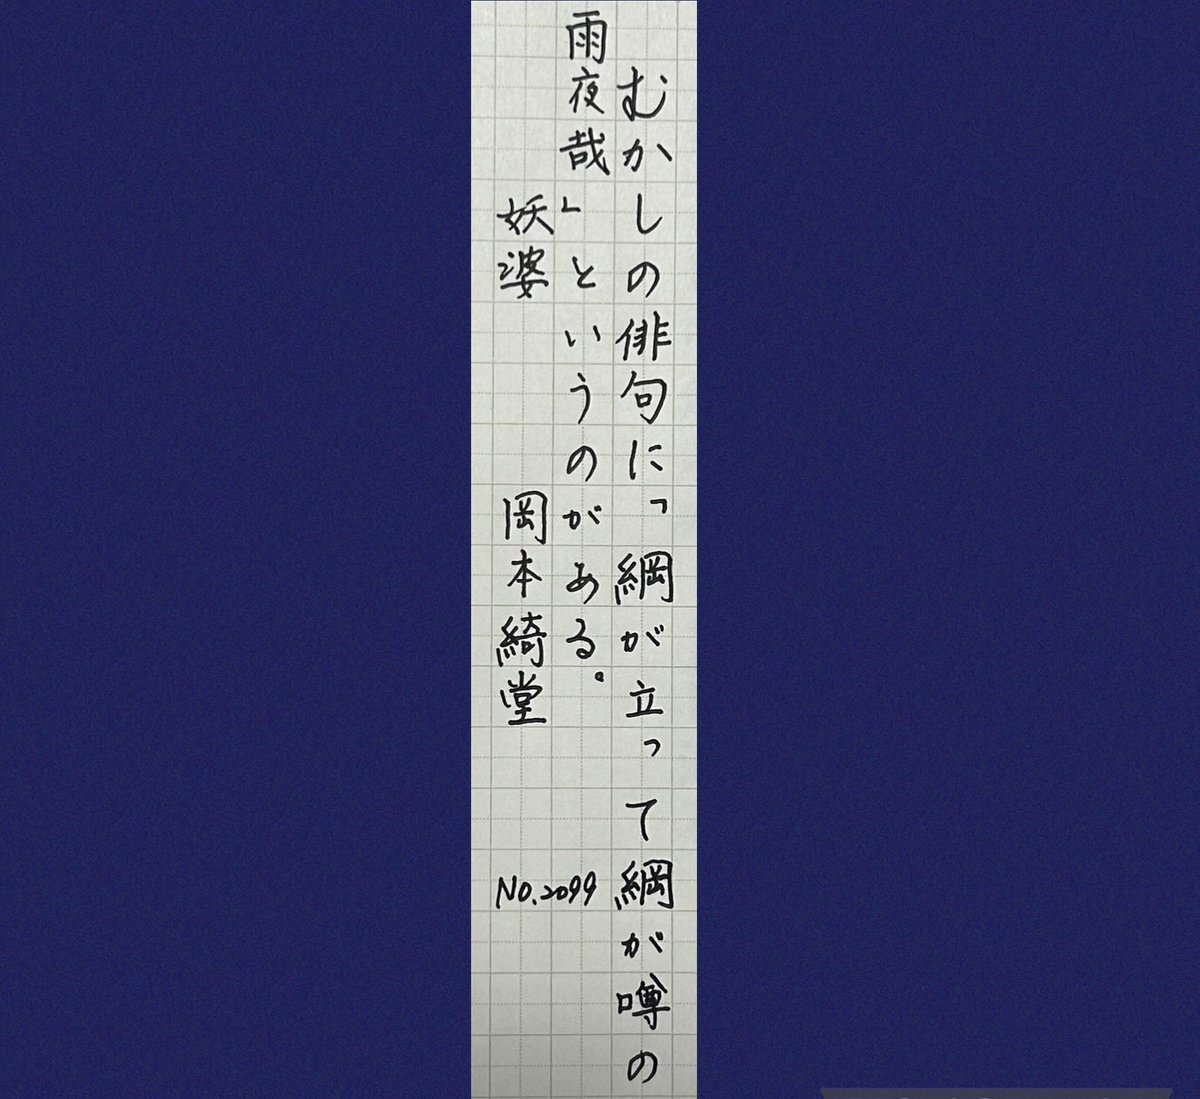 むかしの俳句に「綱が立って綱が噂の
雨夜哉」というのがある。
妖婆　岡本綺堂
No.2099